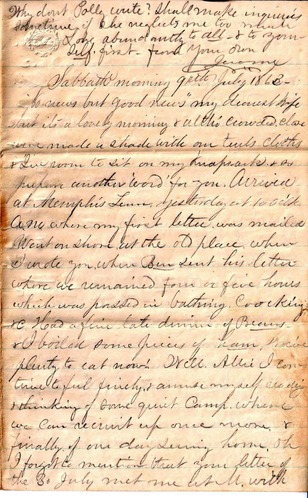 Why dont Polly write? Shall make inquiry
if She neglects me too much
& my abundantly to all & to your
Self first. from Your Own
Jerome
Sabbath morning July 1863
"No news but good news" my dearest Wife
but it's a lovely morning & altho crowded close
have made a shade with our tents cloths
& room to sit on my knapsack & so
prepare another "word" for you. Arrived
at Memphis Tenn. yesterday at 10 oclk
A.M. where my first letter was mailed
Went on shore at the old place, where
I wrote you, when Ben sent his letter
where we remained four or five hours
which was passed in bathing, Coocking
&c. Had a fine late dinner of Beans
& I boiled some pieces of Ham, & have
plenty to eat now. Well Allie I
quietly, & amuse myself
& thinking of some quiet Camp, where
we can recruit up once more, &
finally of one day seeing home. Oh
I forgot to mention that your letter of
the 3d July met me at M. with